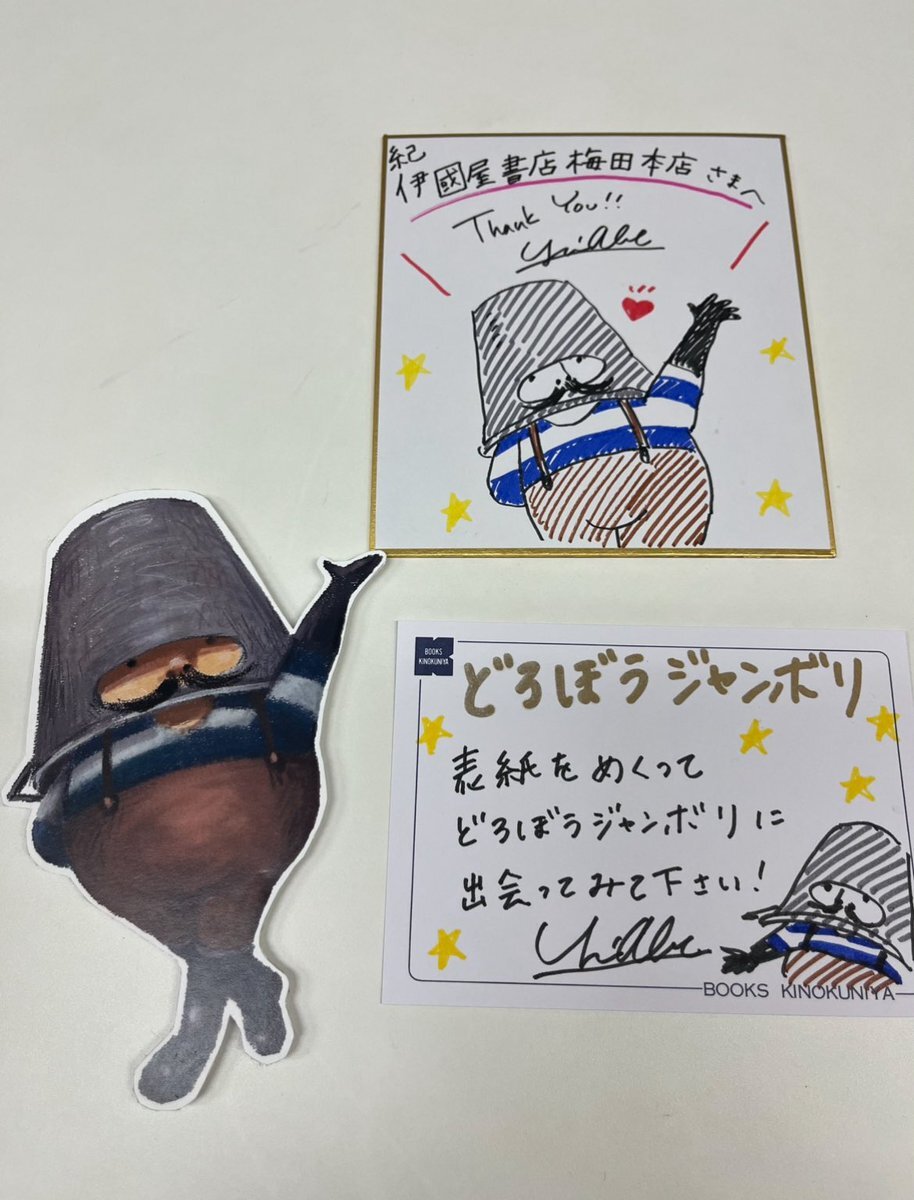 紀
伊國屋書店 梅田本店 さまへ
Thank You!!
BOOKS
KINOKUNIYA
どろぼうジャンボリ
表紙をめくって
どろぼうジャンボリに
出会ってみて下さい!
BOOKS KINOKUNIYA